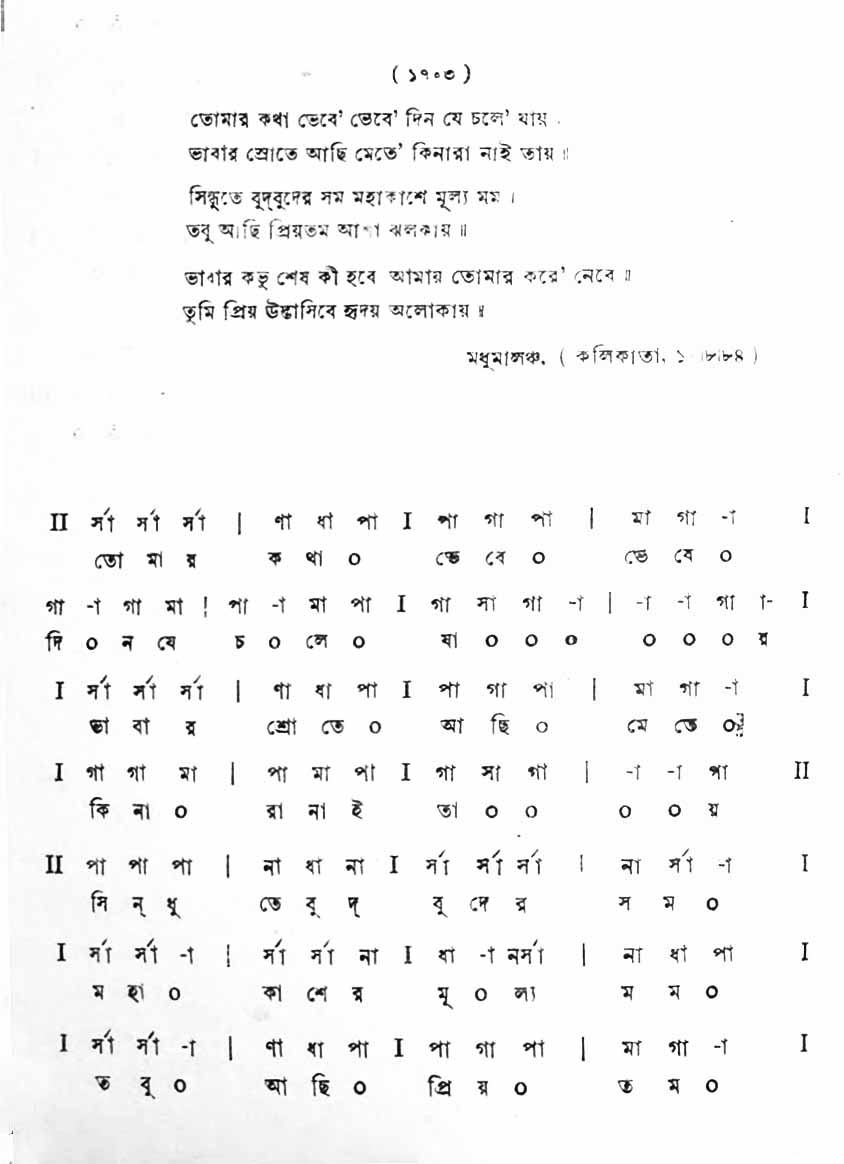 ( ১৭০৩ )
তোমার কথা ভেবে' ভেবে' দিন যে চলে' যায় ।
ভাবার স্রোতে আছি মেতে' কিনারা নাই তায় ॥
সিন্ধুতে বুদ্‌বুদের সম মহাকাশে মূল্য মম ।
তবু আছি প্রিয়তম আশা ঝলকায় ॥
ভাবার কভু শেষ কী হবে আমায় তোমার করে' নেবে ॥
তুমি প্রিয় উদ্ভাসিবে হৃদয় অলোকায় ॥
মধুমালঞ্চ, ( কলিকাতা,
II র্সা র্সা র্সা | ণা ধা পা I পা গা পা | মা গা -া I
তো মা র ক থা ০ ভে বে ০ ভে বে ০
গা -া গা মা | পা -া মা পা I গা সা গা -া | -া -া গা া- I
দি ০ ন যে চ ০ লে ০ যা ০ ০ ০ ০ ০ ০ য়
I র্সা র্সা র্সা | ণা ধা পা I পা গা পা | মা গা -া I
ভা বা র স্রো তে ০ আ ছি ০ মে তে ০
I গা গা মা | পা মা পা I গা সা গা | -া -া গা II
কি না ০ রা না ই তা ০ ০ ০ ০ য়
II পা পা পা | না ধা না I র্সা র্সা র্সা | না র্সা -া I
সি ন্ ধু তে বু দ্ বু দে র স ম ০
I র্সা র্সা -া | র্সা র্সা না I ধা -া নর্সা | না ধা পা I
ম হা ০ কা শে র মূ ০ ল্য ম ম ০
I র্সা র্সা -া | ণা ধা পা I পা গা পা | মা গা -া I
ত বু ০ আ ছি ০ প্রি য় ০ ত ম ০